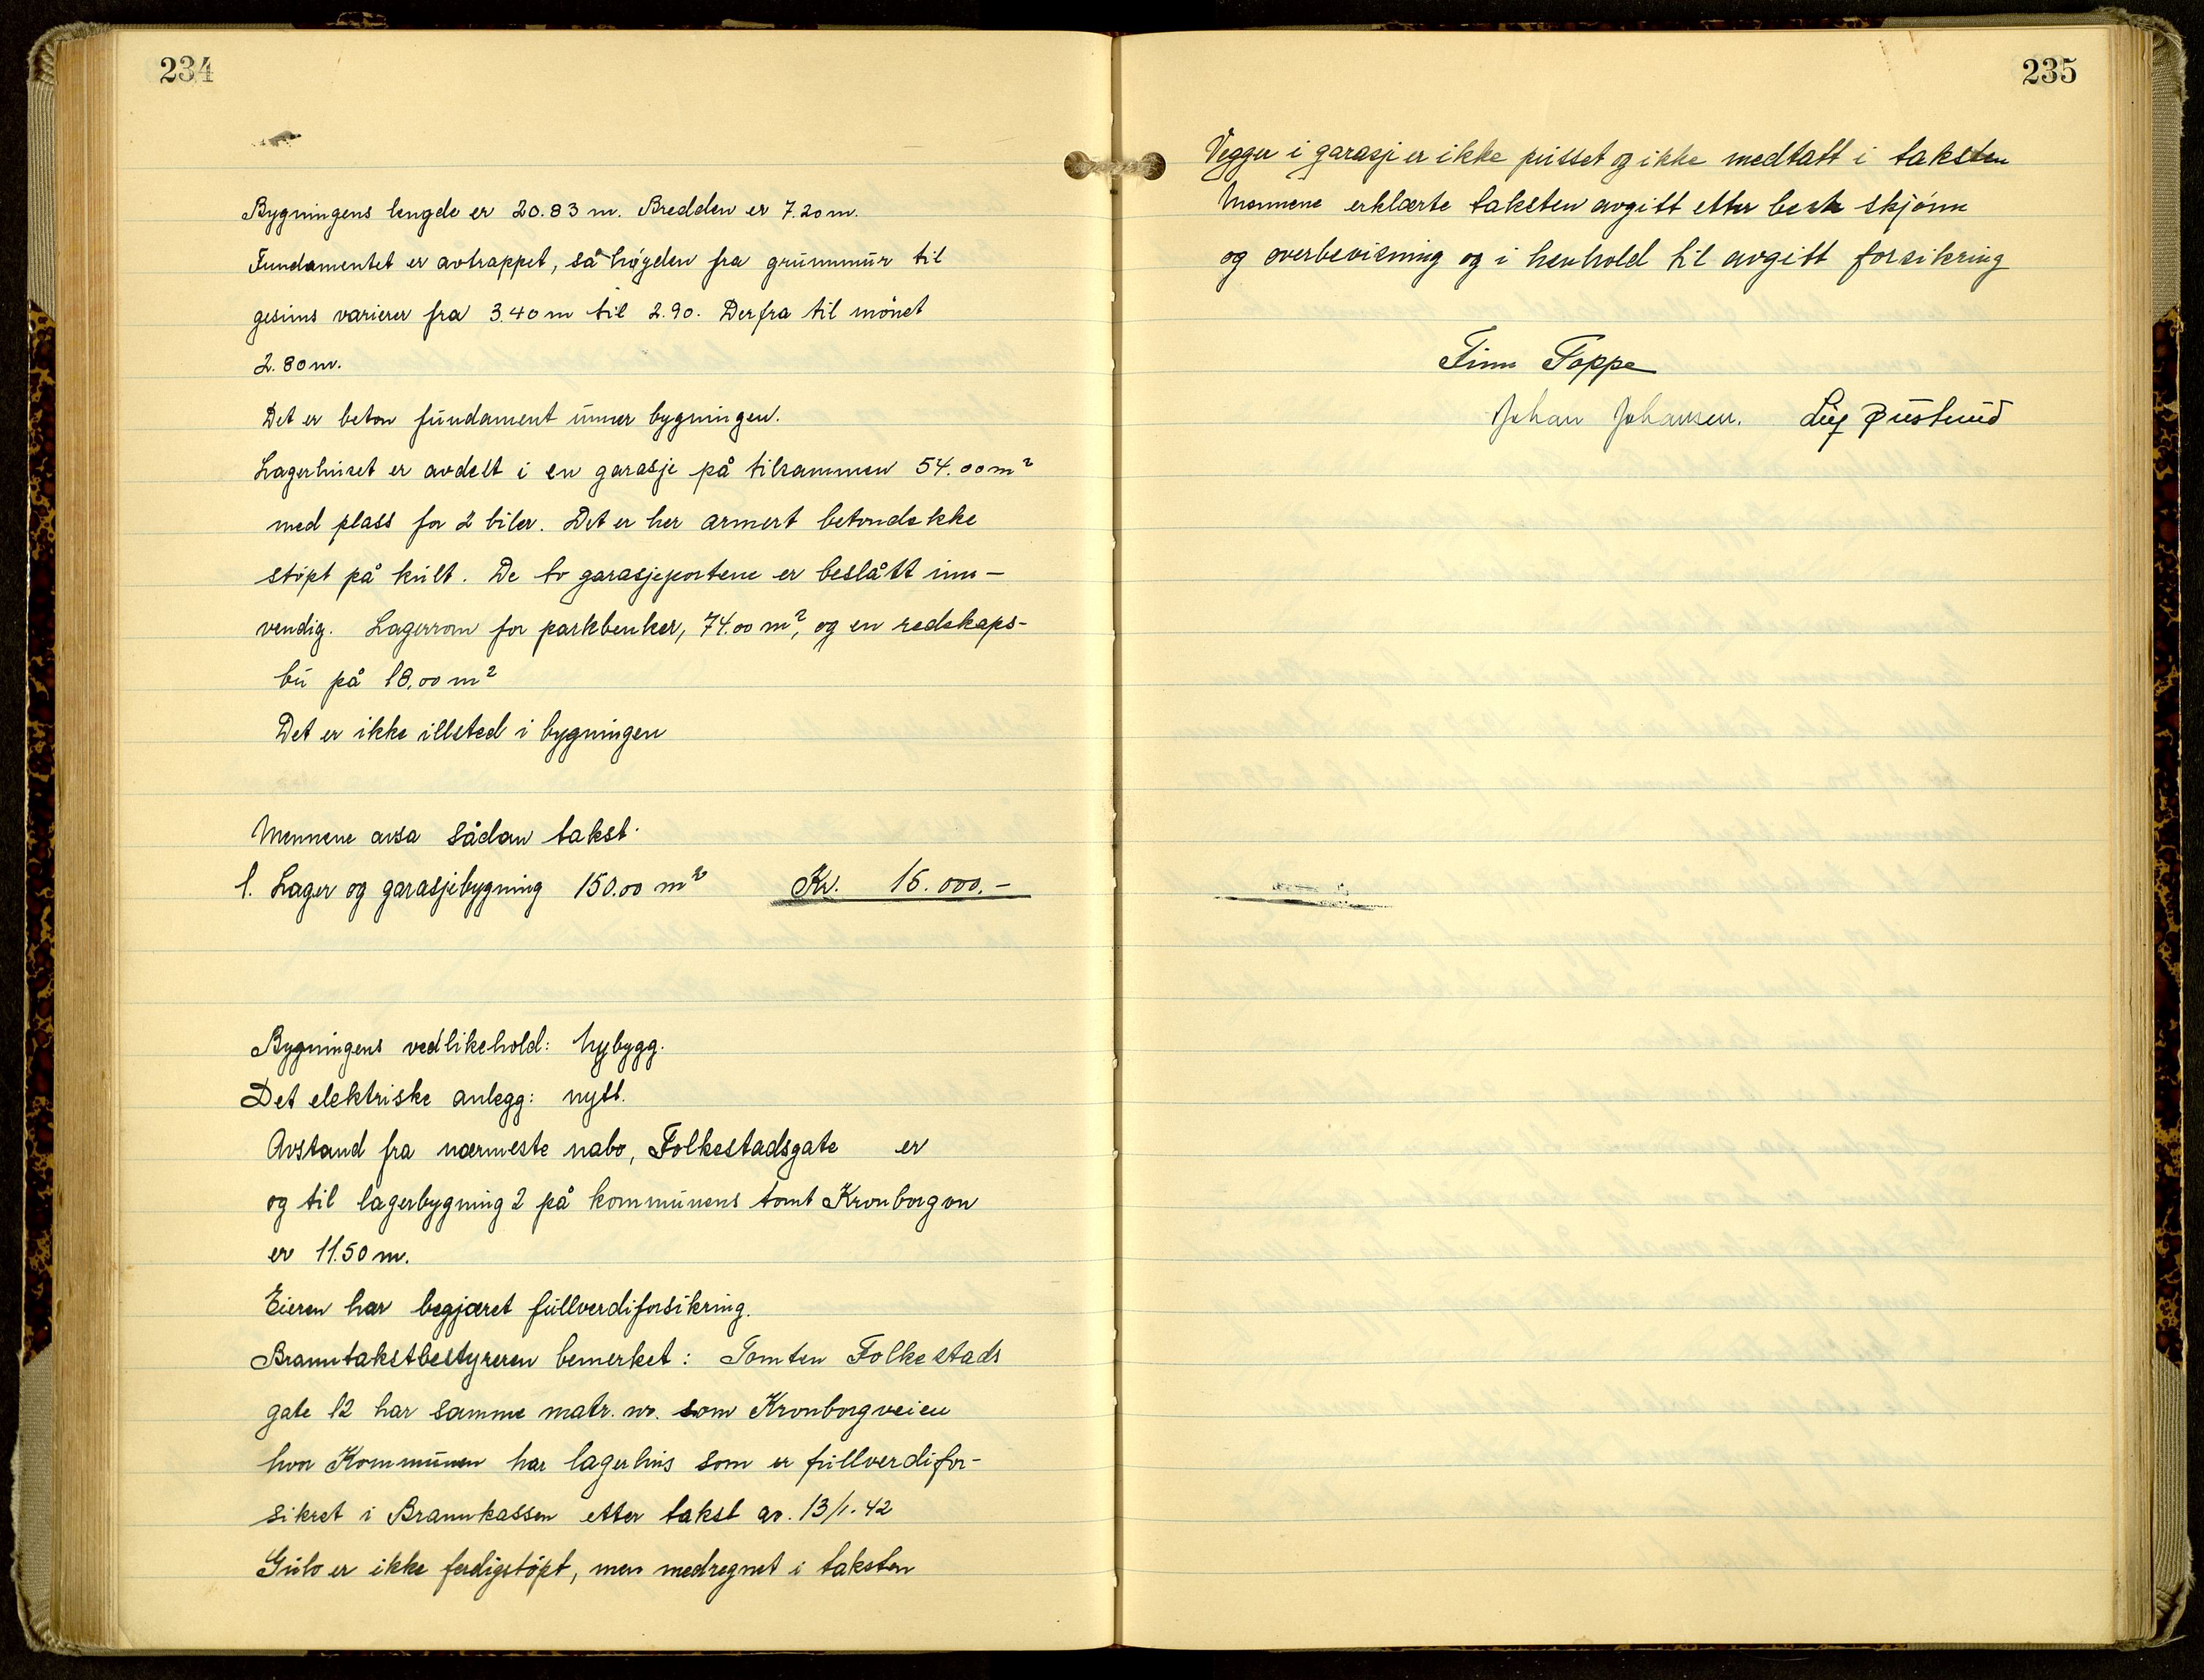 234
Bygningens lengde er 20.83 m. Bredden er 7.20 m.
Fundamentet er avtrappet, så høyden fra grunnmur til
gesims varierer fra 3.40 m til 2.90. Derfra til mönet
2.80 m.
Det er beton fundament unner bygningen.
Lagerhuset er avdelt i en garasje på tilsammen 54.00 m²
med plass for 2 biler. Det er her armert betondekke
støpt på kult. De to garasjeportene er beslått inn-
vendig. Lagerrom for parkbenker, 74.00 m², og en redskaps-
bu på 18,00 m²
Det er ikke illsted i bygningen
Mennene avsa sådan takst.
1. Lager og garasjebygning 150.00 m² Kr. 16.000.-
Bygningens vedlikehold: Nybygg.
Det elektriske anlegg: nytt.
Avstand fra nærmeste nabo, Folkestadsgate er
og til lagerbygning 2 på kommunens tomt Kronborgvn
er 11.50 m.
Eieren har begjæret fullverdiforsikring.
Branntakstbestyreren bemerket: Tomten Folkestads
gate 12 har samme matr. nr. som Kronborgveien
hvor Kommunen har lagerhus som er fullverdifor-
sikret i Brannkassen etter takst av. 13/1. 42
Gulv er ikke ferdigstøpt, men medregnet i taksten
235
Vegger i garasje er ikke pusset og ikke medtatt i taksten
Mennene erklærte taksten avgitt etter beste skjønn
og overbevisning og i henhold til avgitt forsikring
Finn Toppe
Johan Johansen. Leif